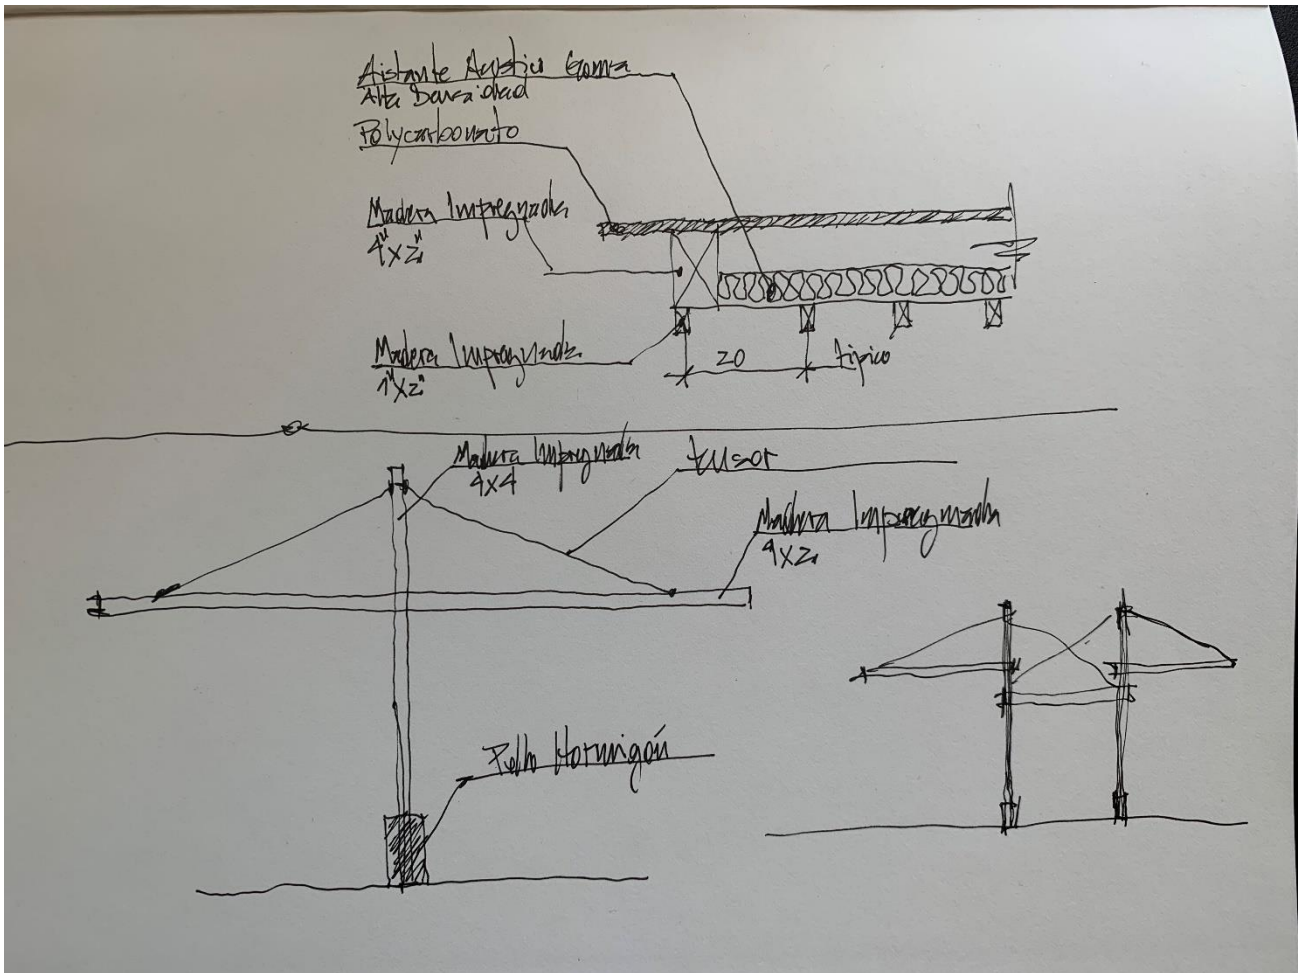 Aislante Acústico Goma
Alta Densidad
Polycarbonato
Madera Impregnada
4"x2"
Madera Impregnada
1"x2"
20
tipico
Madera Impregnada
4x4
tensor
Madera Impregnada
4x2
Pollo Hormigón